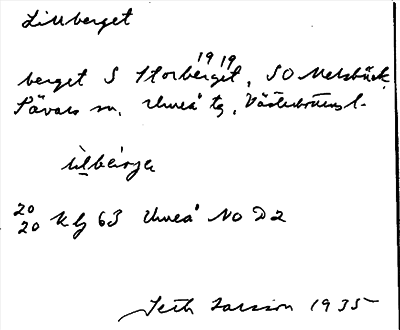 Lillberget
1919
berget S Storberget, SO Metsbäck,
Sävars sn. Umeå tg, Västerbottens l.
lìlbèrjə
20 20 Kbl 63 Umeå NO D2
Seth Larsson 1935